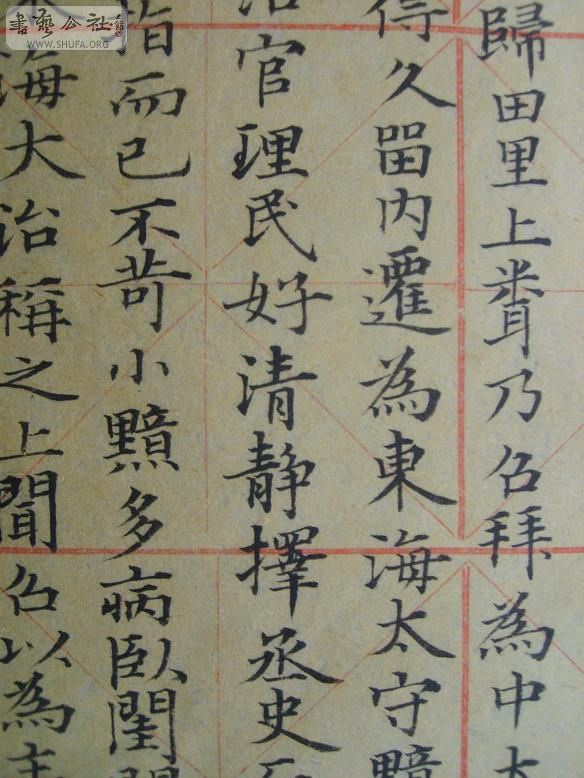 書藝公社
WWW.SHUFA.ORG
歸田里上䎽乃召拜為中大
得久㽞內遷為東海太守黯
治官理民好清静擇丞史
指而已不苛小黯多病臥閨
海大治稱之上聞召以為主